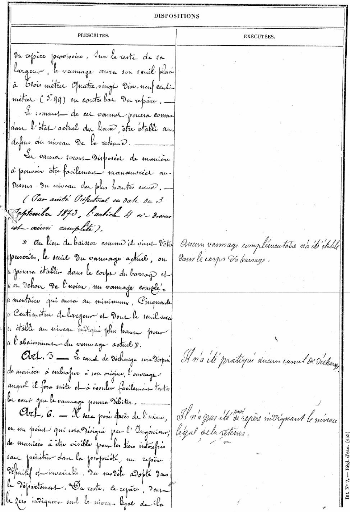 DISPOSITIONS
PRESCRITES.
EXÉCUTÉES.
du repère provisoire. Sur le reste de sa
largeur, le vannage aura son seuil placé
à trois mètres quatre vingt dix neuf centi-
mètres (3.99) en contrebas du repère. —
Le sommet de ces vannes pourra comme
dans l'état actuel des lieux, être établi au
dessus du niveau de la retenue.
Les vannes seront disposées de manière
à pouvoir être facilement manœuvrées au-
dessus du niveau des plus hautes eaux. —
(Par arrêté Préfectoral en date du 3
Septembre 1873, l'article 4
est ainsi complété).
« Au lieu de baisser comme il vient d'être
prescrit, le seuil du vannage actuel, on
pourra établir dans le corps du barrage et
en dehors de l'usine, un vannage complé-
mentaire qui aura au minimum, Cinquante
Centimètres de largeur et dont le seuil sera
établi au niveau indiqué plus haut pour
l'abaissement du vannage actuel ».
Aucun vannage complémentaire n'a été établi
dans le corps du barrage.
Art. 5 — Le canal de décharge sera disposé
de manière à embrasser à son origine, l'ouvrage
auquel il fera suite et à écouler facilement toutes
les eaux que le vannage pourra débiter.
Il n'a été pratiqué aucun canal de décharge
Art. 6. — Il sera posé près de l'usine,
en un point qui sera désigné par l'Ingénieur,
de manière à être visible pour les tiers intéressés
sans pénétrer dans la propriété, un repère
définitif et invariable, du modèle adopté dans
le département. Ce repère, dont
le zéro indiquera seul le niveau légal de la
Il n'a pas été de repère indiquant le niveau
légal de la retenue.